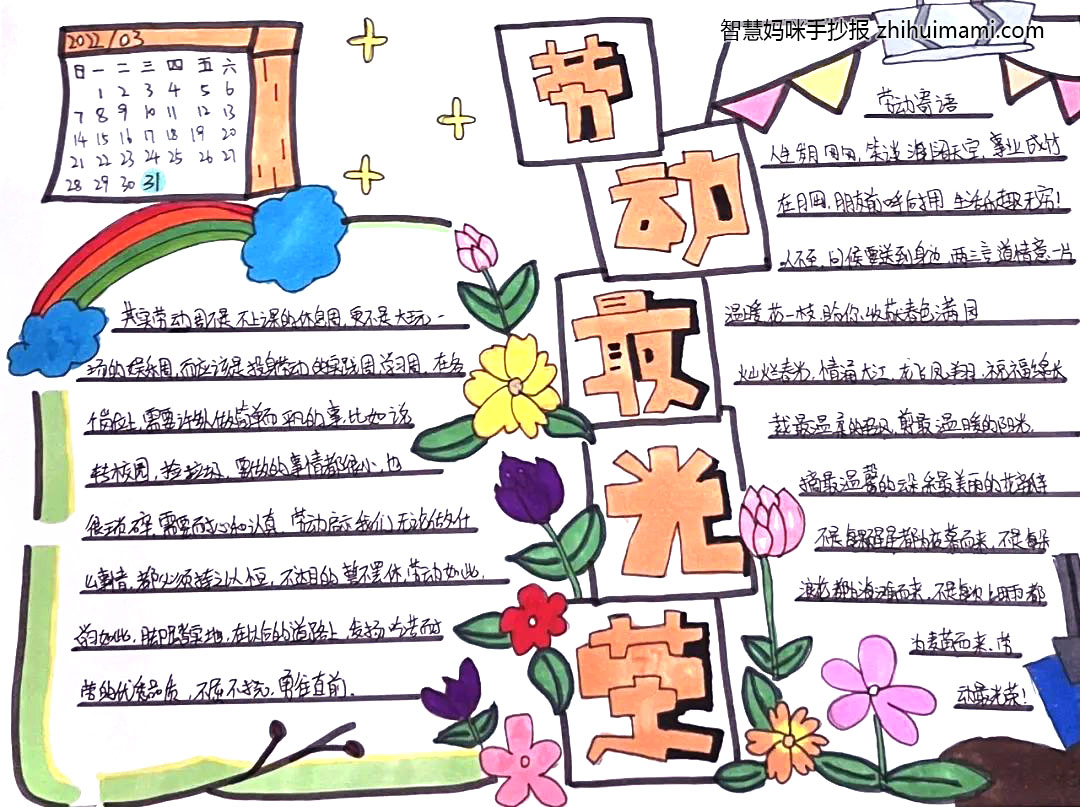 智慧妈咪手抄报 zhihuimami.com
2022/03
日 一 二 三 四 五 六
1 2 3 4 5 6
7 8 9 10 11 12 13
14 15 16 17 18 19 20
21 22 23 24 25 26 27
28 29 30 31
劳动最光荣
其实劳动周不是不上课的休息周,更不是大玩一
场的娱乐周,而应该是投身劳动的实践周学习周,在各
个岗位上,需要许多人做简单而平凡的事,比如说
转校园,捡垃圾,要做的事情都很小,也
很琐碎,需要耐心和认真,劳动启示我们,无论做什
么事情,都必须持之以恒,不达目的誓不罢休,劳动如此,
学习如此,脚踏实地,在以后的道路上,发扬吃苦耐
劳的优秀品质,不屈不挠,勇往直前.
劳动寄语
人生 笑谈海阔天空,事业成竹
在 朋友前呼后拥 生活乐趣无穷!
人不至,问候要送到身边,两三言道情意一片
温暖,花一枝,贻你,收获春色满园
灿烂春光,情涌大江,龙飞凤翔,祝福绵长
裁最温柔的 风,剪最温暖的阳光,
摘最温馨的云朵,采最美丽的
不是每 都为夜幕而来,不是每朵
浪花都为海滩而来,不是每 都
为麦苗而来,劳
动最光荣!